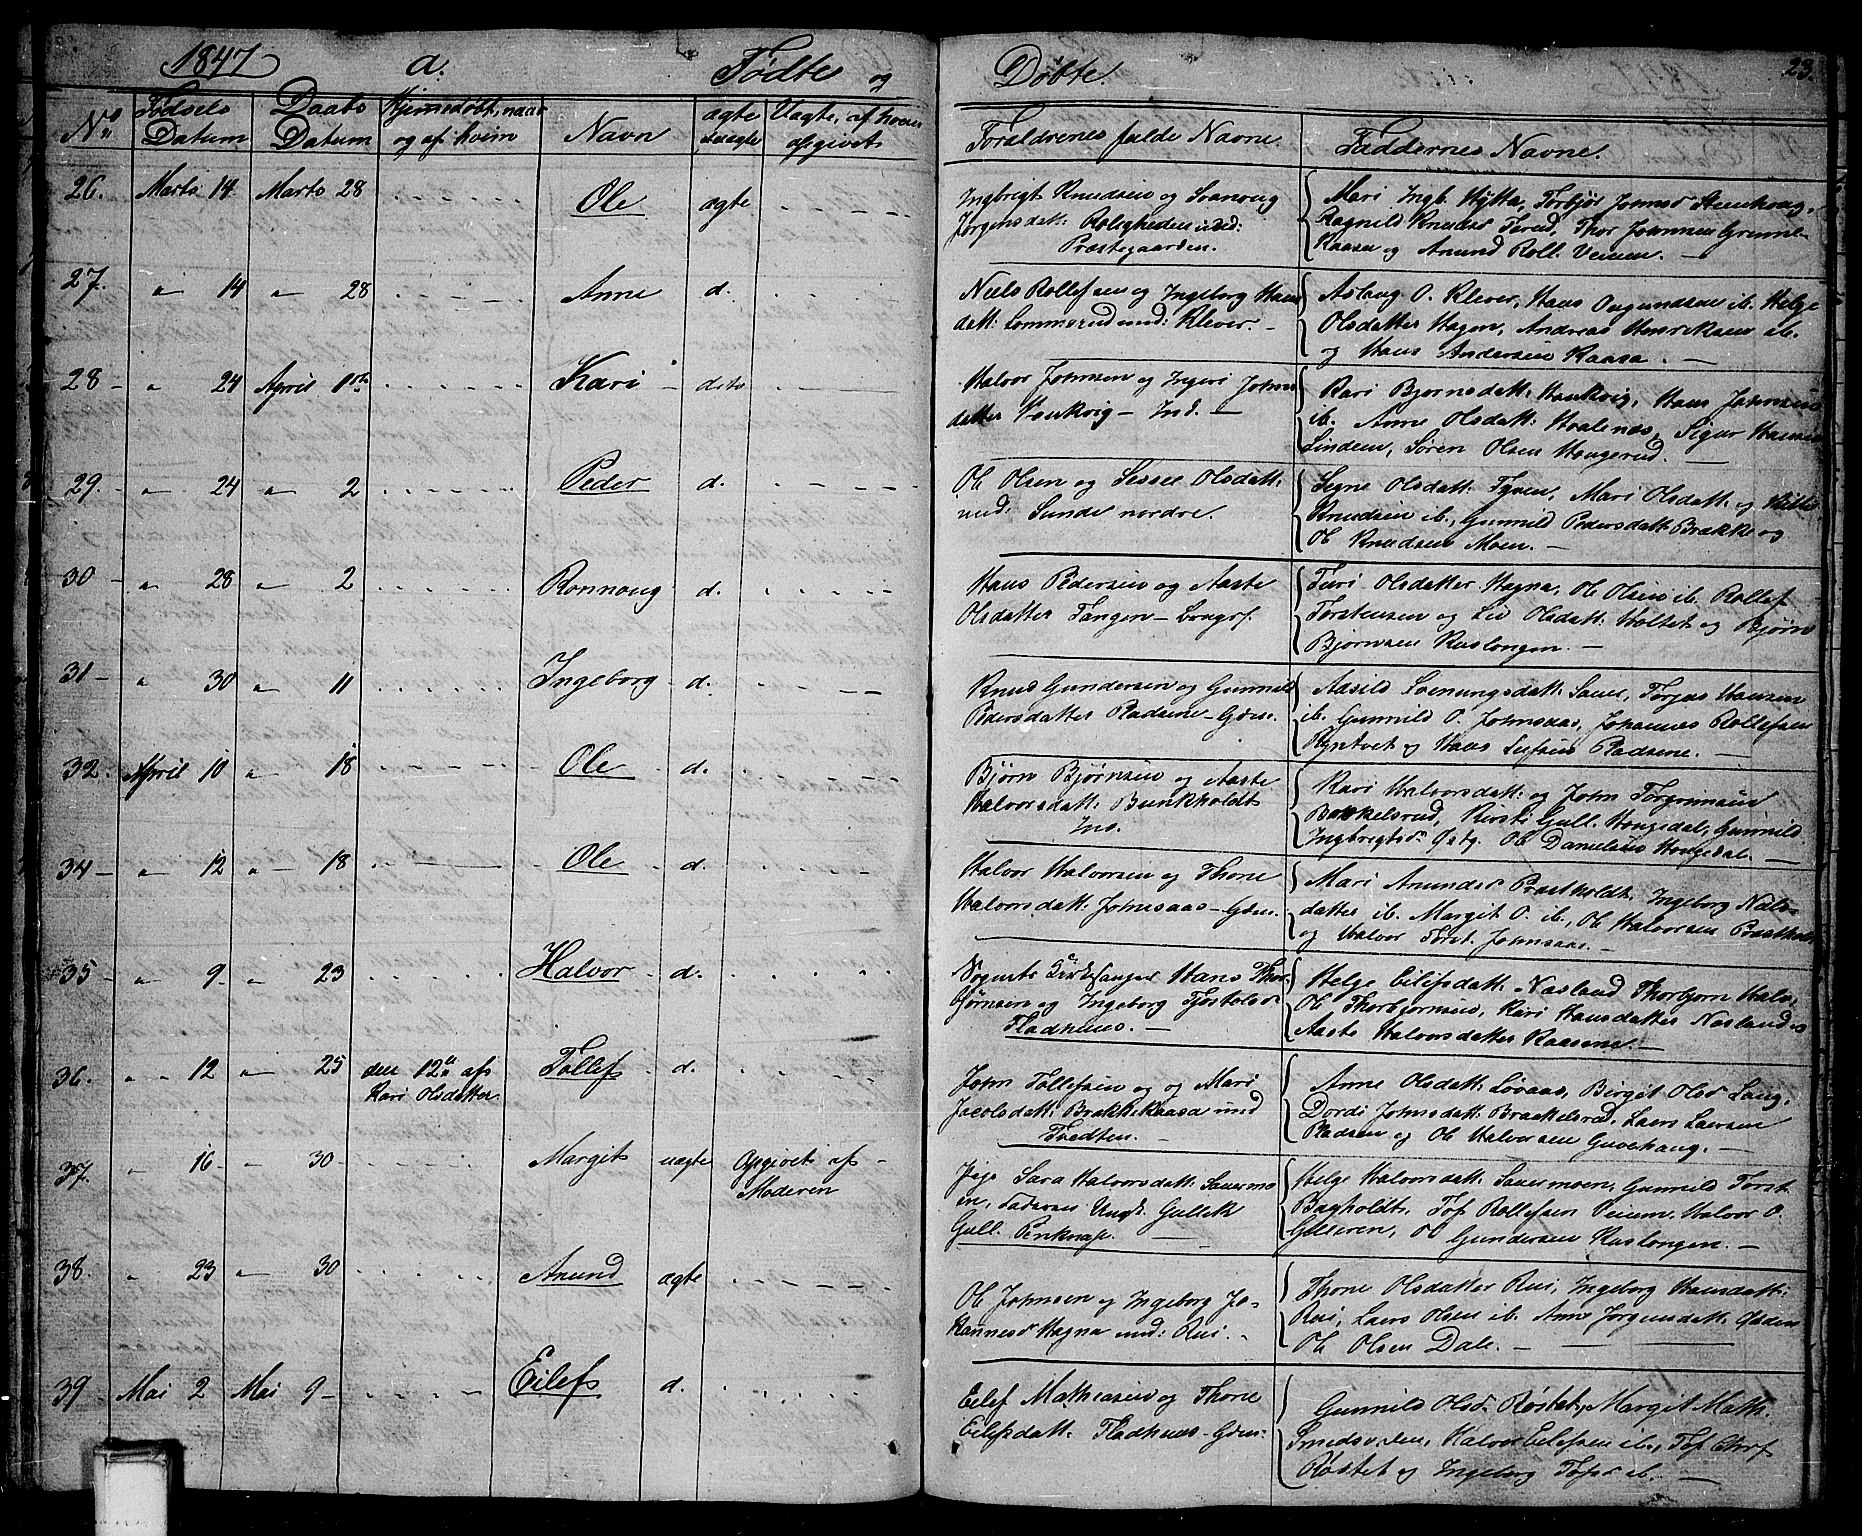 1847 a. Fødte og Døbte. 23.
No Fødsels Datum Daabs Datum Hjemmedøbt, naar og af hvem Navn ægte uægte Uægte, af hvem opgivet Forældrenes fulde Navne. Faddernes Navne.
26. Marts 14. Marts 28 Ole ægte
Ingbrigt Knudsen og Svanoug
Jørgensdatt: Roligheden und:
Præstegaarden.
Mari Ingb. Hytta, Torbjør Johnsd
Ragnild Knudsd Terud, Thor Johnsen
Kaasa og Anund Roll. Veium.
27. " 14 " 28 Anne d.
Niels Rollefsen og Ingeborg Hans
datt: Lommerud und: Klever.
Aslaug O. Klever, Hans Ougundsen ib. Helge
Olsdatter Hagen, Andreas Henriksen ib.
og Hans Andersen Kaasa.
28 " 24 April 1ste Kari dito
Halvor Johnsen og Ingeri Johns
datter Haukvig - Ind.
Kari Bjørnsdatt: Haukvig, Hans Johnsen
ib. Anne Olsdatt: Hvalenæs, Sigur Hansen
Linden, Søren Olsen Haugerud.
29. " 24 " 2 Peder d.
Ole Olsen og Sessee Olsdatt:
und: Sunde nordre.
Segne Olsdatt: Tyven, Mari Olsdatt: og
Knudsen ib., Gunnild Pedersdatt: Brække og
Ole Knudsen Moen.
30 " 28 " 2 Rønnoug d.
Hans Pedersen og Aaste
Olsdatter Tangen - Longsf.
Turi Olsdatter Hagna, Ole Olsen ib. Rollef
Torstensen og Liv Olsdatt: Holtet og Bjørn
Bjørnsen Kaslongen.
31 " 30 " 11 Ingeborg d.
Knud Gundersen og Gunnild
Pedersdatter Pladsene - Gden.
Aasild Svenungsdatt: Sauer, Torjus Hansen
ib. Gunnild O. Johnsaas, Johannes Rollefsen
og Hans Pladsene.
32. April 10 " 18 Ole d.
Bjørn Bjørnsen og Aaste
Halvorsdatt: Bunkholdt
Ind.
Kari Halvorsdatt: og John Torgrimsen
Bakkelsrud, Kirsti Gull. Haugedal, Gunnild
Ingbrigtsd. Østg. Ole Danielsen Haugedal.
34 " 12 " 18 Ole d.
Halvor Halvorsen og Thone
Halvorsdatt: Johnsaas - Gden.
Mari Anundsd Præstholdt, Ingeborg Niels-
datter ib. Margit O. ib., Ole Halvorsen Præsthold
og Halvor Torst. Johnsaas.
35 " 9 " 23 Halvor d.
Sognets Kirkesanger Hans Thor-
bjørnsen og Ingeborg Tjøstolsd
Fladhuus.
Helge Eilifsdatt: Næsland Thorbjørn Halv.
Ole Thorbjørnsen, Kari Hansdatter Næsland og
Aaste Halvorsdatter Kaasene.
36. " 12 " 25 den 12te af Kari Olsdatter Tollef d.
John Tollefsen og og Mari
Jacobsdatt: Brækkekaasa und
Tvedten.
Anne Olsdatt: Løvaas, Birgit Olsd Lang,
Dordi Johnsdatt: Braakelsrud, Laers Laersen
Pladsen og Ole Halvorsen Guvehaug.
37. " 16 " 30 Margit uægte Opgivet af Moderen
Pige Sara Halvorsdatt: Sauermo
en, Faderen Ungk. Gulik
Gull. Penknap.
Helge Halvorsdatt: Sauermoen, Gunnild Torst.
Bagholdt, Tof Rollefsen Veium, Halvor O.
Ole Gundersen Kaslongen.
38. " 23 " 30 Anund ægte
Ole Johnsen og Ingeborg Jo-
hannesd Hagna und: Rui.
Thone Olsdatter Rui, Ingeborg Hansdatt:
Rui, Laers Olsen ib. Anne Jørgensdatt:
Ole Olsen Dale.
39 Mai 2 Mai 9 Eilef d.
Eilef Mathiasen og Thone
Eilefsdatt: Fladhuus - Gden.
Gunnild Olsd. Røstet, Margit Math.
Smedsviden, Halvor Eilefsen ib., Tof
Røstet og Ingeborg Tofsd ib.